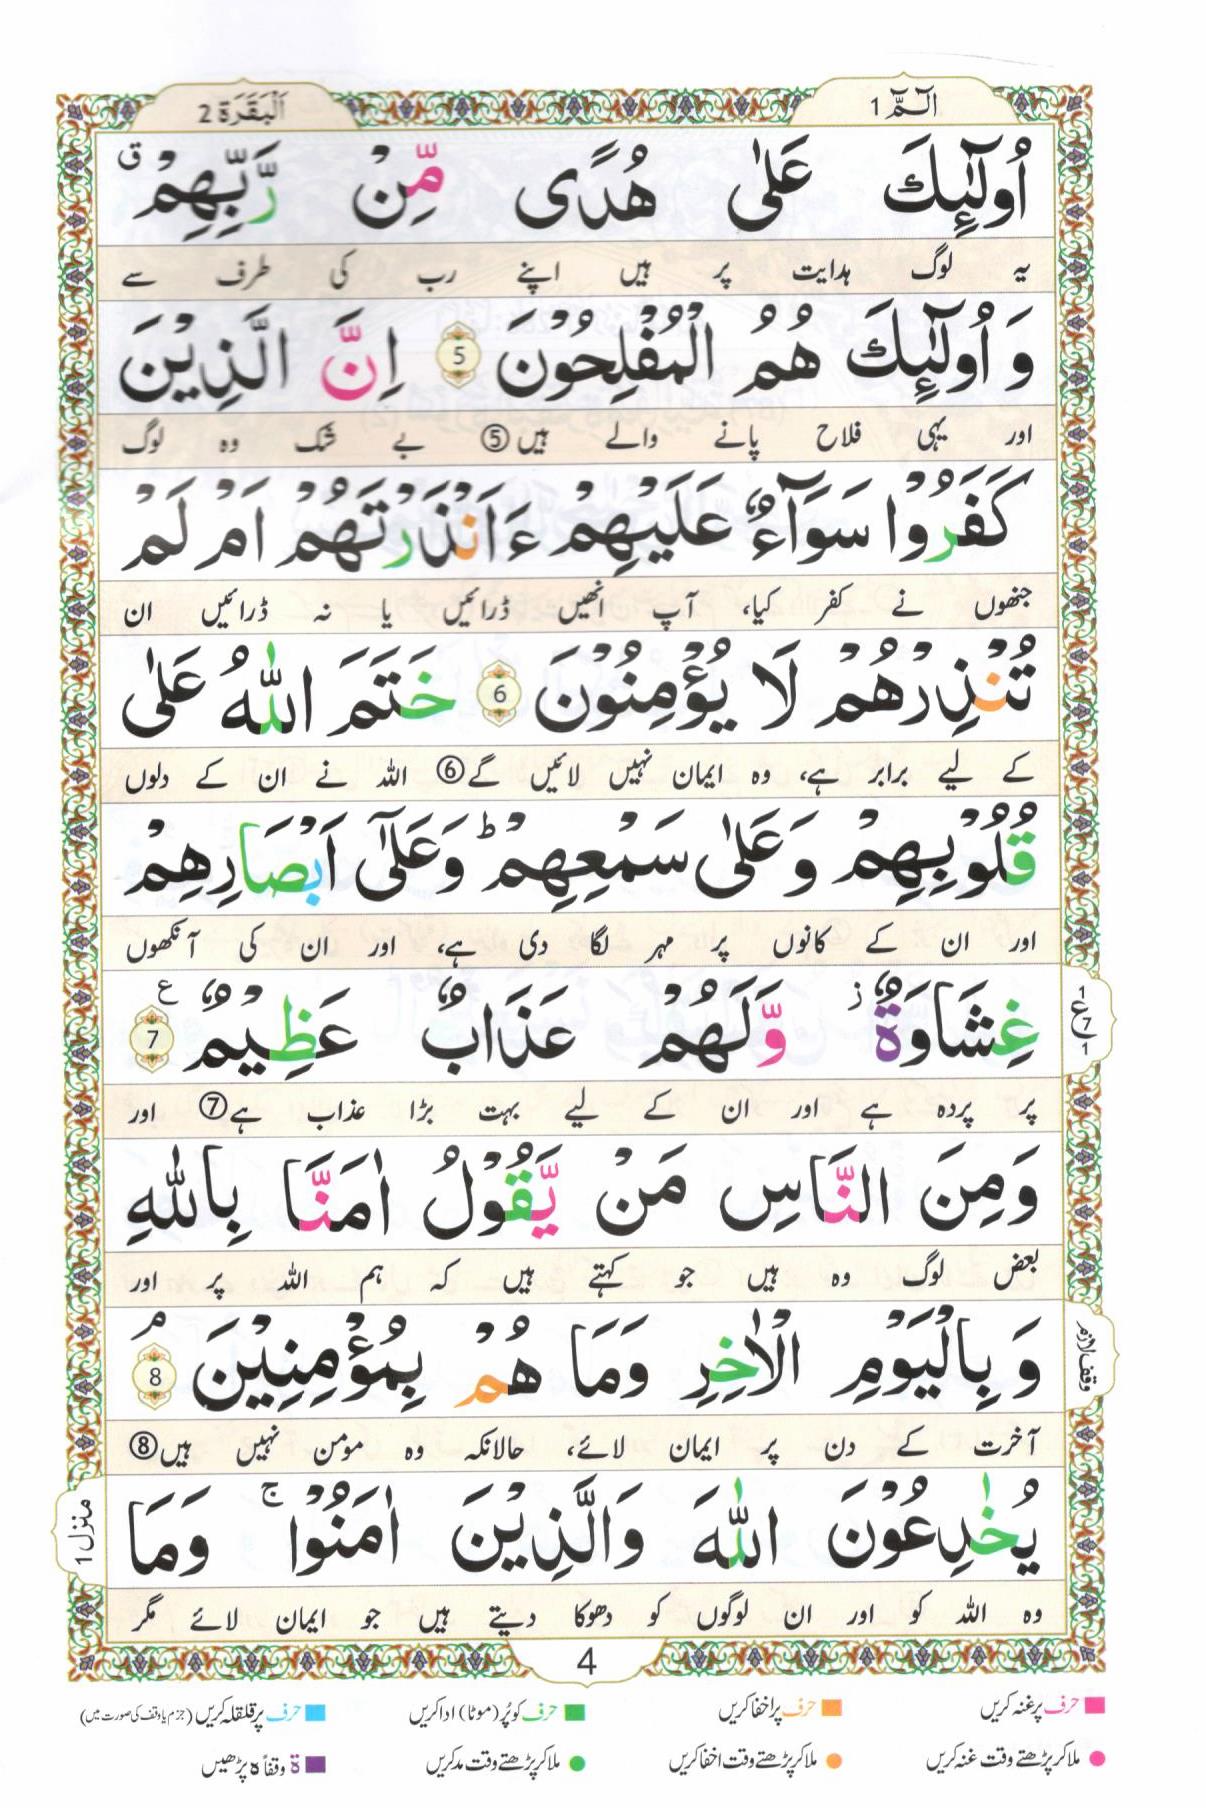 الٓمّٓ 1
اَلْبَقَرَة 2
اُولٰٓئِكَ عَلٰى هُدًى مِّنْ رَّبِّهِمْ ۙق
یہ لوگ ہدایت پر ہیں اپنے رب کی طرف سے
وَ اُولٰٓئِكَ هُمُ الْمُفْلِحُوْنَ 5 اِنَّ الَّذِيْنَ
اور یہی فلاح پانے والے ہیں⑤ بے شک وہ لوگ
كَفَرُوْا سَوَآءٌ عَلَيْهِمْ ءَاَنْذَرْتَهُمْ اَمْ لَمْ
جنھوں نے کفر کیا، آپ انھیں ڈرائیں یا نہ ڈرائیں ان
تُنْذِرْهُمْ لَا يُؤْمِنُوْنَ 6 خَتَمَ اللّٰهُ عَلٰى
کے لیے برابر ہے، وہ ایمان نہیں لائیں گے⑥ اللہ نے ان کے دلوں
قُلُوْبِهِمْ وَعَلٰى سَمْعِهِمْ ؕ وَعَلٰٓى اَبْصَارِهِمْ
اور ان کے کانوں پر مہر لگا دی ہے، اور ان کی آنکھوں
غِشَاوَةٌ ز وَّلَهُمْ عَذَابٌ عَظِيْمٌ 7 ع
1 ع 7 1
پر پردہ ہے اور ان کے لیے بہت بڑا عذاب ہے⑦ اور
وَمِنَ النَّاسِ مَنْ يَّقُوْلُ اٰمَنَّا بِاللّٰهِ
بعض لوگ وہ ہیں جو کہتے ہیں کہ ہم اللہ پر اور
وَ بِالْيَوْمِ الْاٰخِرِ وَمَا هُمْ بِمُؤْمِنِيْنَ 8 م
وقف لازم
آخرت کے دن پر ایمان لائے، حالانکہ وہ مومن نہیں ہیں⑧
يُخٰدِعُوْنَ اللّٰهَ وَالَّذِيْنَ اٰمَنُوْا ۚ وَمَا
منزل 1
وہ اللہ کو اور ان لوگوں کو دھوکا دیتے ہیں جو ایمان لائے مگر
4
حرف پر غنہ کریں حرف پر اخفا کریں حرف کو پُر (موٹا) ادا کریں حرف پر قلقلہ کریں (جزم یا وقف کی صورت میں)
ملا کر پڑھتے وقت غنہ کریں ملا کر پڑھتے وقت اخفا کریں ملا کر پڑھتے وقت مد کریں ة وقفاً ہ پڑھیں